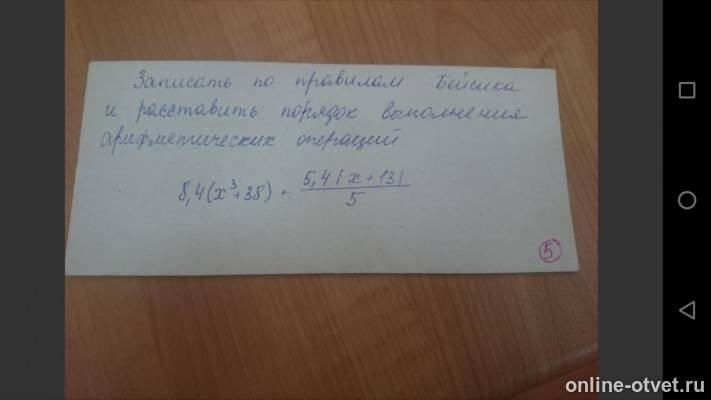 Записать по правилам Бейсика
и расставить порядок выполнения
арифметических операций
8,4(x³+38) · 5,4|x+13|
5
5
online-otvet.ru